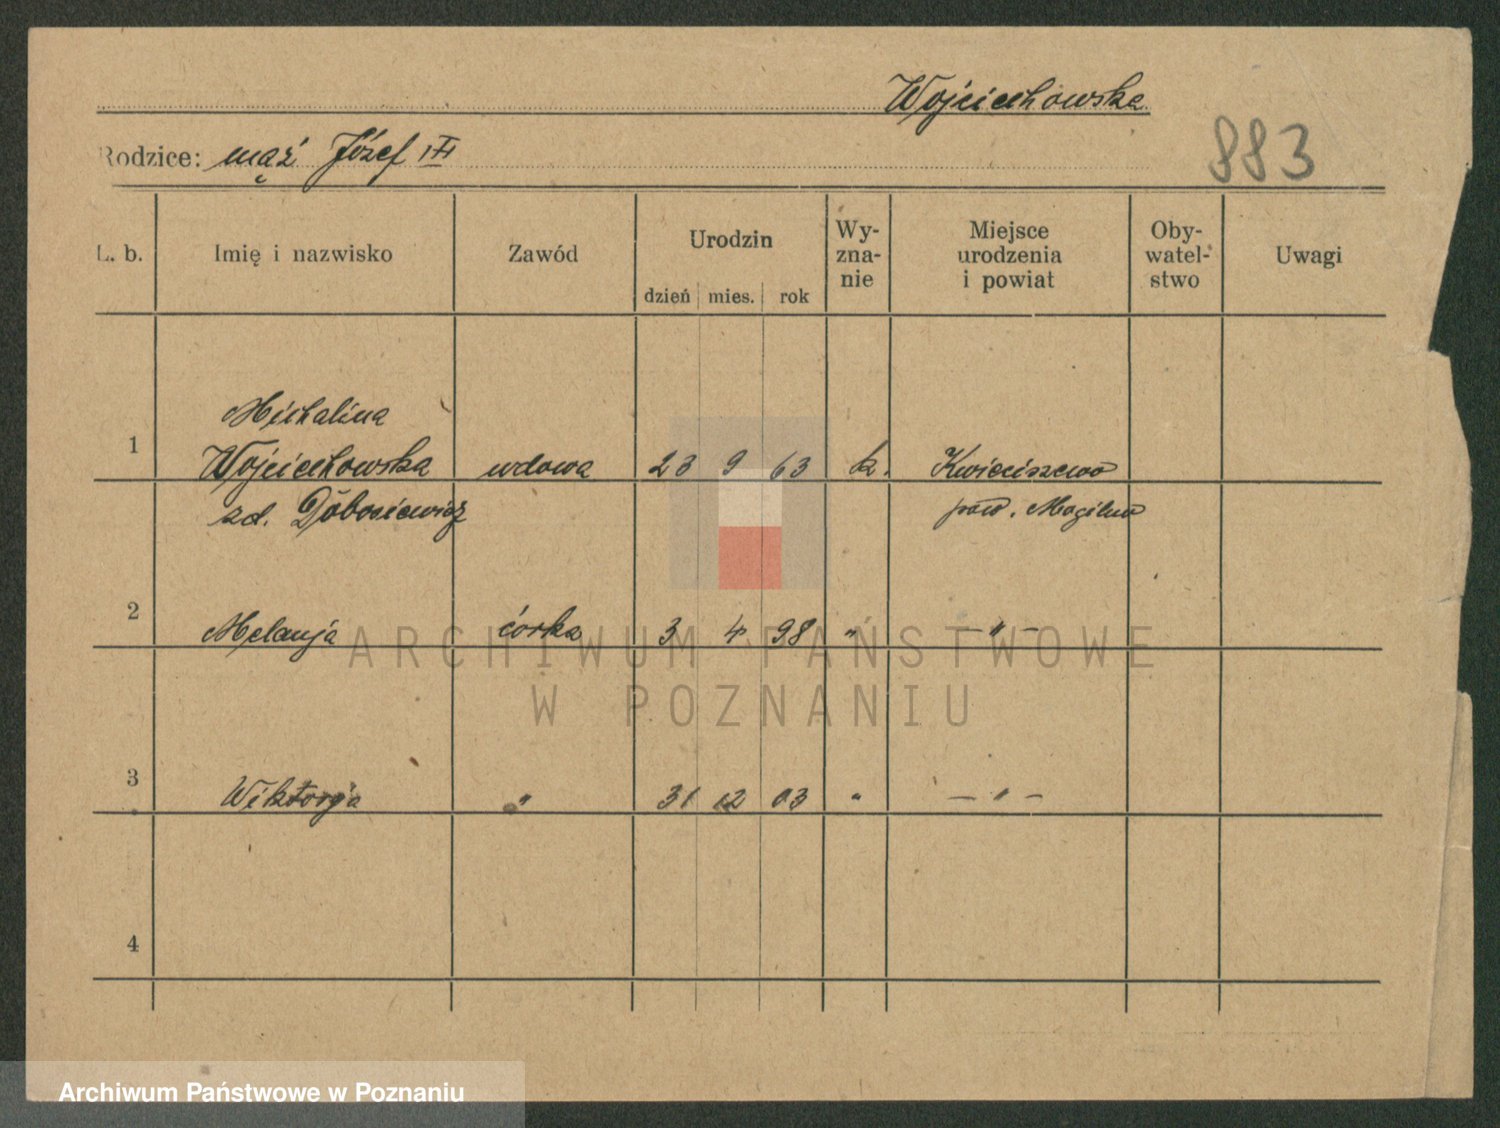 Wojciechowska
Rodzice: mąż Józef III
883
L. b. Imię i nazwisko Zawód Urodzin Wy- Miejsce Oby- Uwagi
zna- urodzenia watel-
nie i powiat stwo
dzień mies. rok
Michalina
1 Wojciechowska wdowa 23 9 63 k. Kwieciszewo
zd. Dobosiewicz pow. Mogilno
2 Melanja córka 3 4 98 " — " —
3 Wiktorja " 31 12 03 " — " —
4
ARCHIWUM PAŃSTWOWE
W POZNANIU
Archiwum Państwowe w Poznaniu